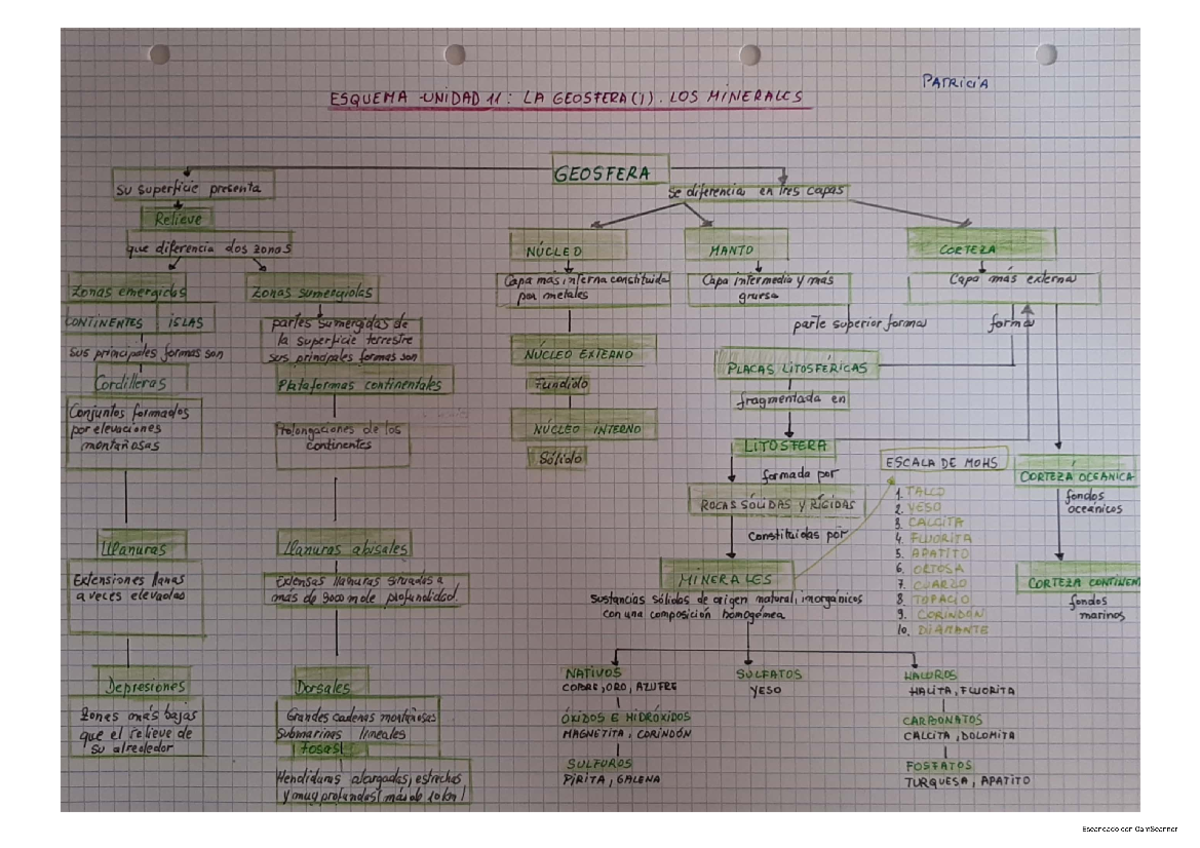 PATRICIA
ESQUEMA -UNIDAD 11: LA GEOSFERA(I). LOS MINERALES
GEOSFERA
su superficie presenta
Relieve
que diferencia dos zonas
Zonas emergidas
CONTINENTES ISLAS
sus principales formas son
Cordilleras
Conjuntos formados
por elevaciones
montañosas
Llanuras
Extensiones llanas
a veces elevadas
Depresiones
Zonas más bajas
que el relieve de
su alrededor
Zonas sumergidas
partes sumergidas de
la superficie terrestre
sus principales formas son
Plataformas continentales
Prolongaciones de los
continentes
Llanuras abisales
Extensas llanuras situadas a
más de 3000m de profundidad.
Dorsales
Grandes cadenas montañosas
submarinas lineales
Fosas
Hendiduras alargadas, estrechas
y muy profundas (más de 10km)
se diferencia en tres capas
NÚCLEO
Capa más interna constituida
por metales
NÚCLEO EXTERNO
Fundido
NÚCLEO INTERNO
Sólido
MANTO
Capa intermedia y más
gruesa
parte superior forma
PLACAS LITOSFÉRICAS
fragmentada en
LITOSFERA
formada por
ROCAS SÓLIDAS Y RÍGIDAS
Constituidas por
MINERALES
Sustancias sólidas de origen natural, inorgánicos
con una composición homogénea
NATIVOS
COBRE, ORO, AZUFRE
ÓXIDOS E HIDRÓXIDOS
MAGNETITA, CORINDÓN
SULFUROS
PIRITA, GALENA
SULFATOS
YESO
HALUROS
HALITA, FLUORITA
CARBONATOS
CALCITA, DOLOMITA
FOSFATOS
TURQUESA, APATITO
CORTEZA
Capa más externa
forma
ESCALA DE MOHS
1. TALCO
2. YESO
3. CALCITA
4. FLUORITA
5. APATITO
6. ORTOSA
7. CUARZO
8. TOPACIO
9. CORINDÓN
10. DIAMANTE
CORTEZA OCEÁNICA
fondos
oceánicos
CORTEZA CONTINEN
fondos
marinos
Escaneado con CamScanner